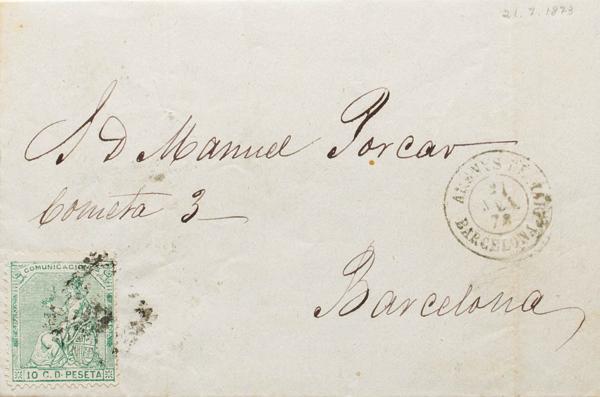 21. 7. 1873
S. D Manuel Porcar
Cometa 3
Barcelona
ARENYS DE MAR
21
73
BARCELONA
COMUNICACIO
10 C. D. PESETA